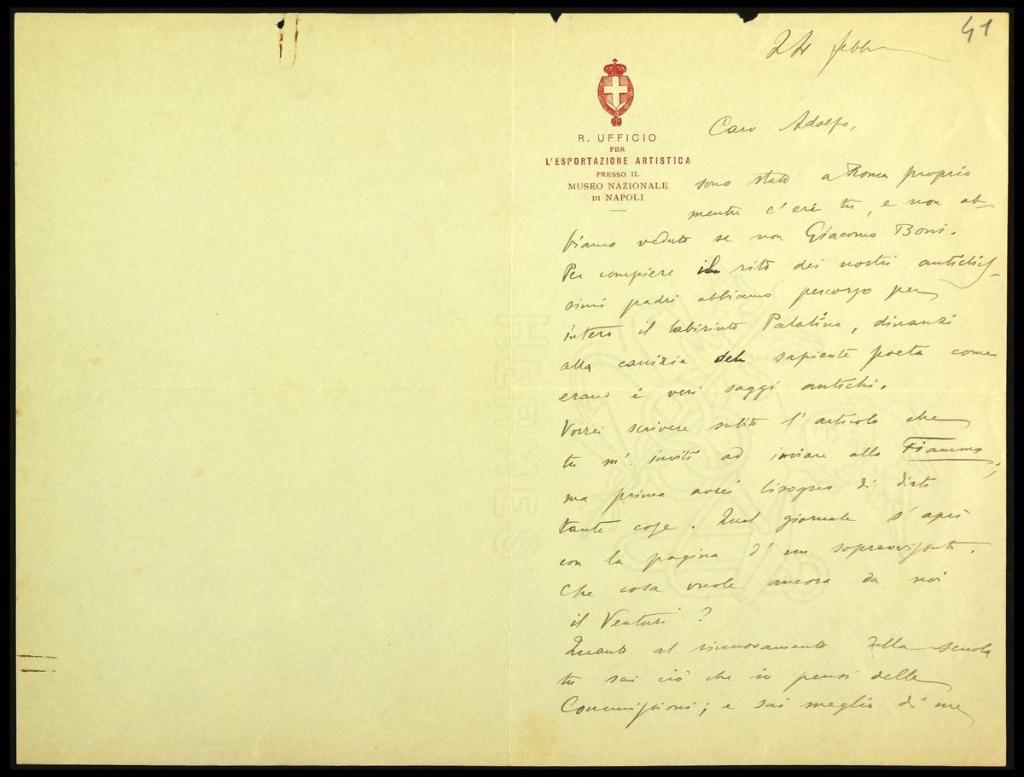 41
24 febbr
R. UFFICIO
PER
L'ESPORTAZIONE ARTISTICA
PRESSO IL
MUSEO NAZIONALE
DI NAPOLI
Caro Adolfo,
sono stato a Roma proprio
mentre c'eri tu, e non ab-
biamo veduto se non Giacomo Boni.
Per compiere il rito dei nostri antichis-
simi padri abbiamo percorso per
intero il labirinto Palatino, dinanzi
alla canizie del sapiente poeta come
erano i veri saggi antichi.
Vorrei scrivere subito l'articolo che
tu m'inviti ad inviare alla Fiamma;
ma prima avrei bisogno di dirti
tante cose. Quel giornale s'aprì
con la pagina d'un sopravvissuto.
Che cosa vuole ancora da noi
il Venturi?
Quanto al rinnovamento della scuola
tu sai ciò che io pensi delle
Commissioni; e sai meglio di me
HERMES